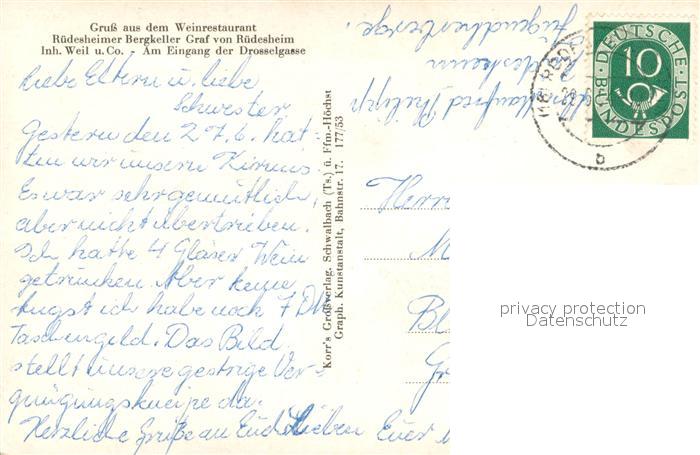 Gruß aus dem Weinrestaurant
Rüdesheimer Bergkeller Graf von Rüdesheim
Inh. Weil u. Co. - Am Eingang der Drosselgasse
Liebe Eltern u. liebe
Schwester
Gestern den 27.6. hat-
ten wir unsere Kirmes.
Es war sehr gemütlich,
aber nicht übertrieben.
Ich hatte 4 Gläser Wein
getrunken. Aber keine
Angst ich habe noch 7 DM
Taschengeld. Das Bild
stellt unsere gestrige Ver-
gnügungskneipe da.
Herzliche Grüße an Euch Lieben Euer
Korr's Großverlag, Schwalbach (Ts.) ü. Ffm.-Höchst
Graph. Kunstanstalt, Bahnstr. 17. 177/53
Manfred Philipp
Jugendherberge
DEUTSCHE
BUNDESPOST
10
b
Herrn
M
Bl
G
privacy protection
Datenschutz